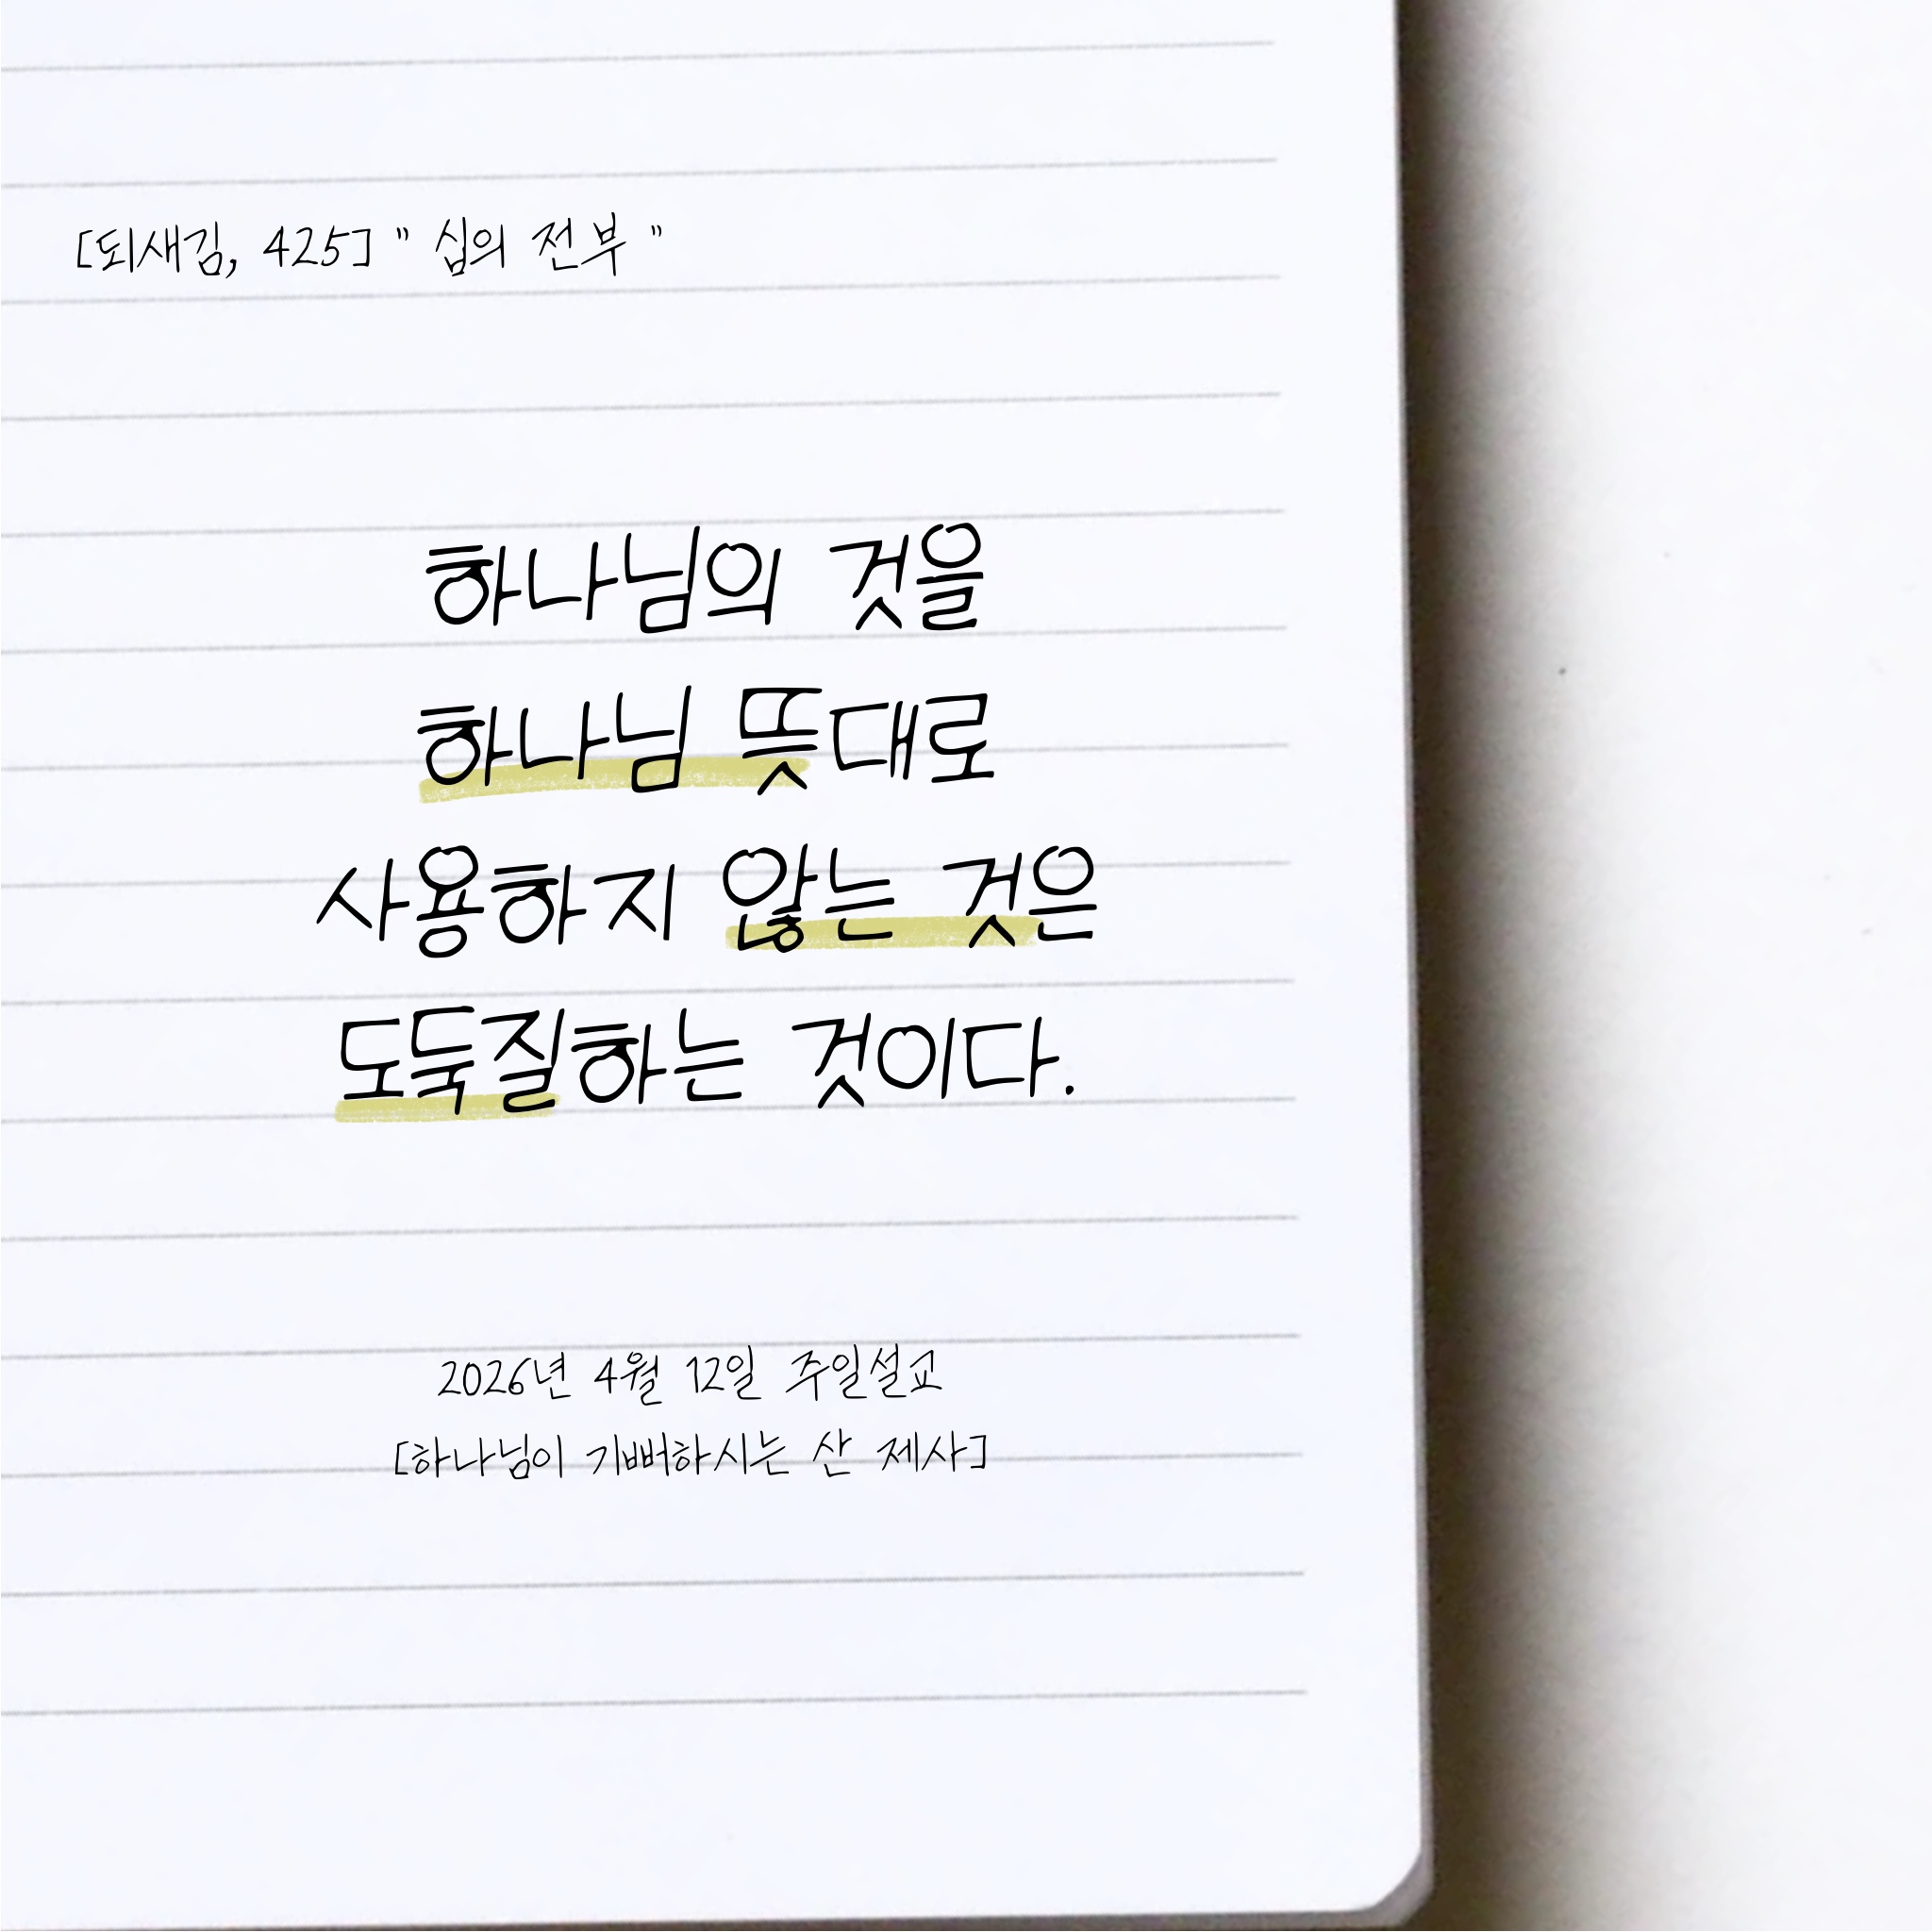 [되새김, 425] " 십의 전부 "
하나님의 것을
하나님 뜻대로
사용하지 않는 것은
도둑질하는 것이다.
2026년 4월 12일 주일설교
[하나님이 기뻐하시는 산 제사]